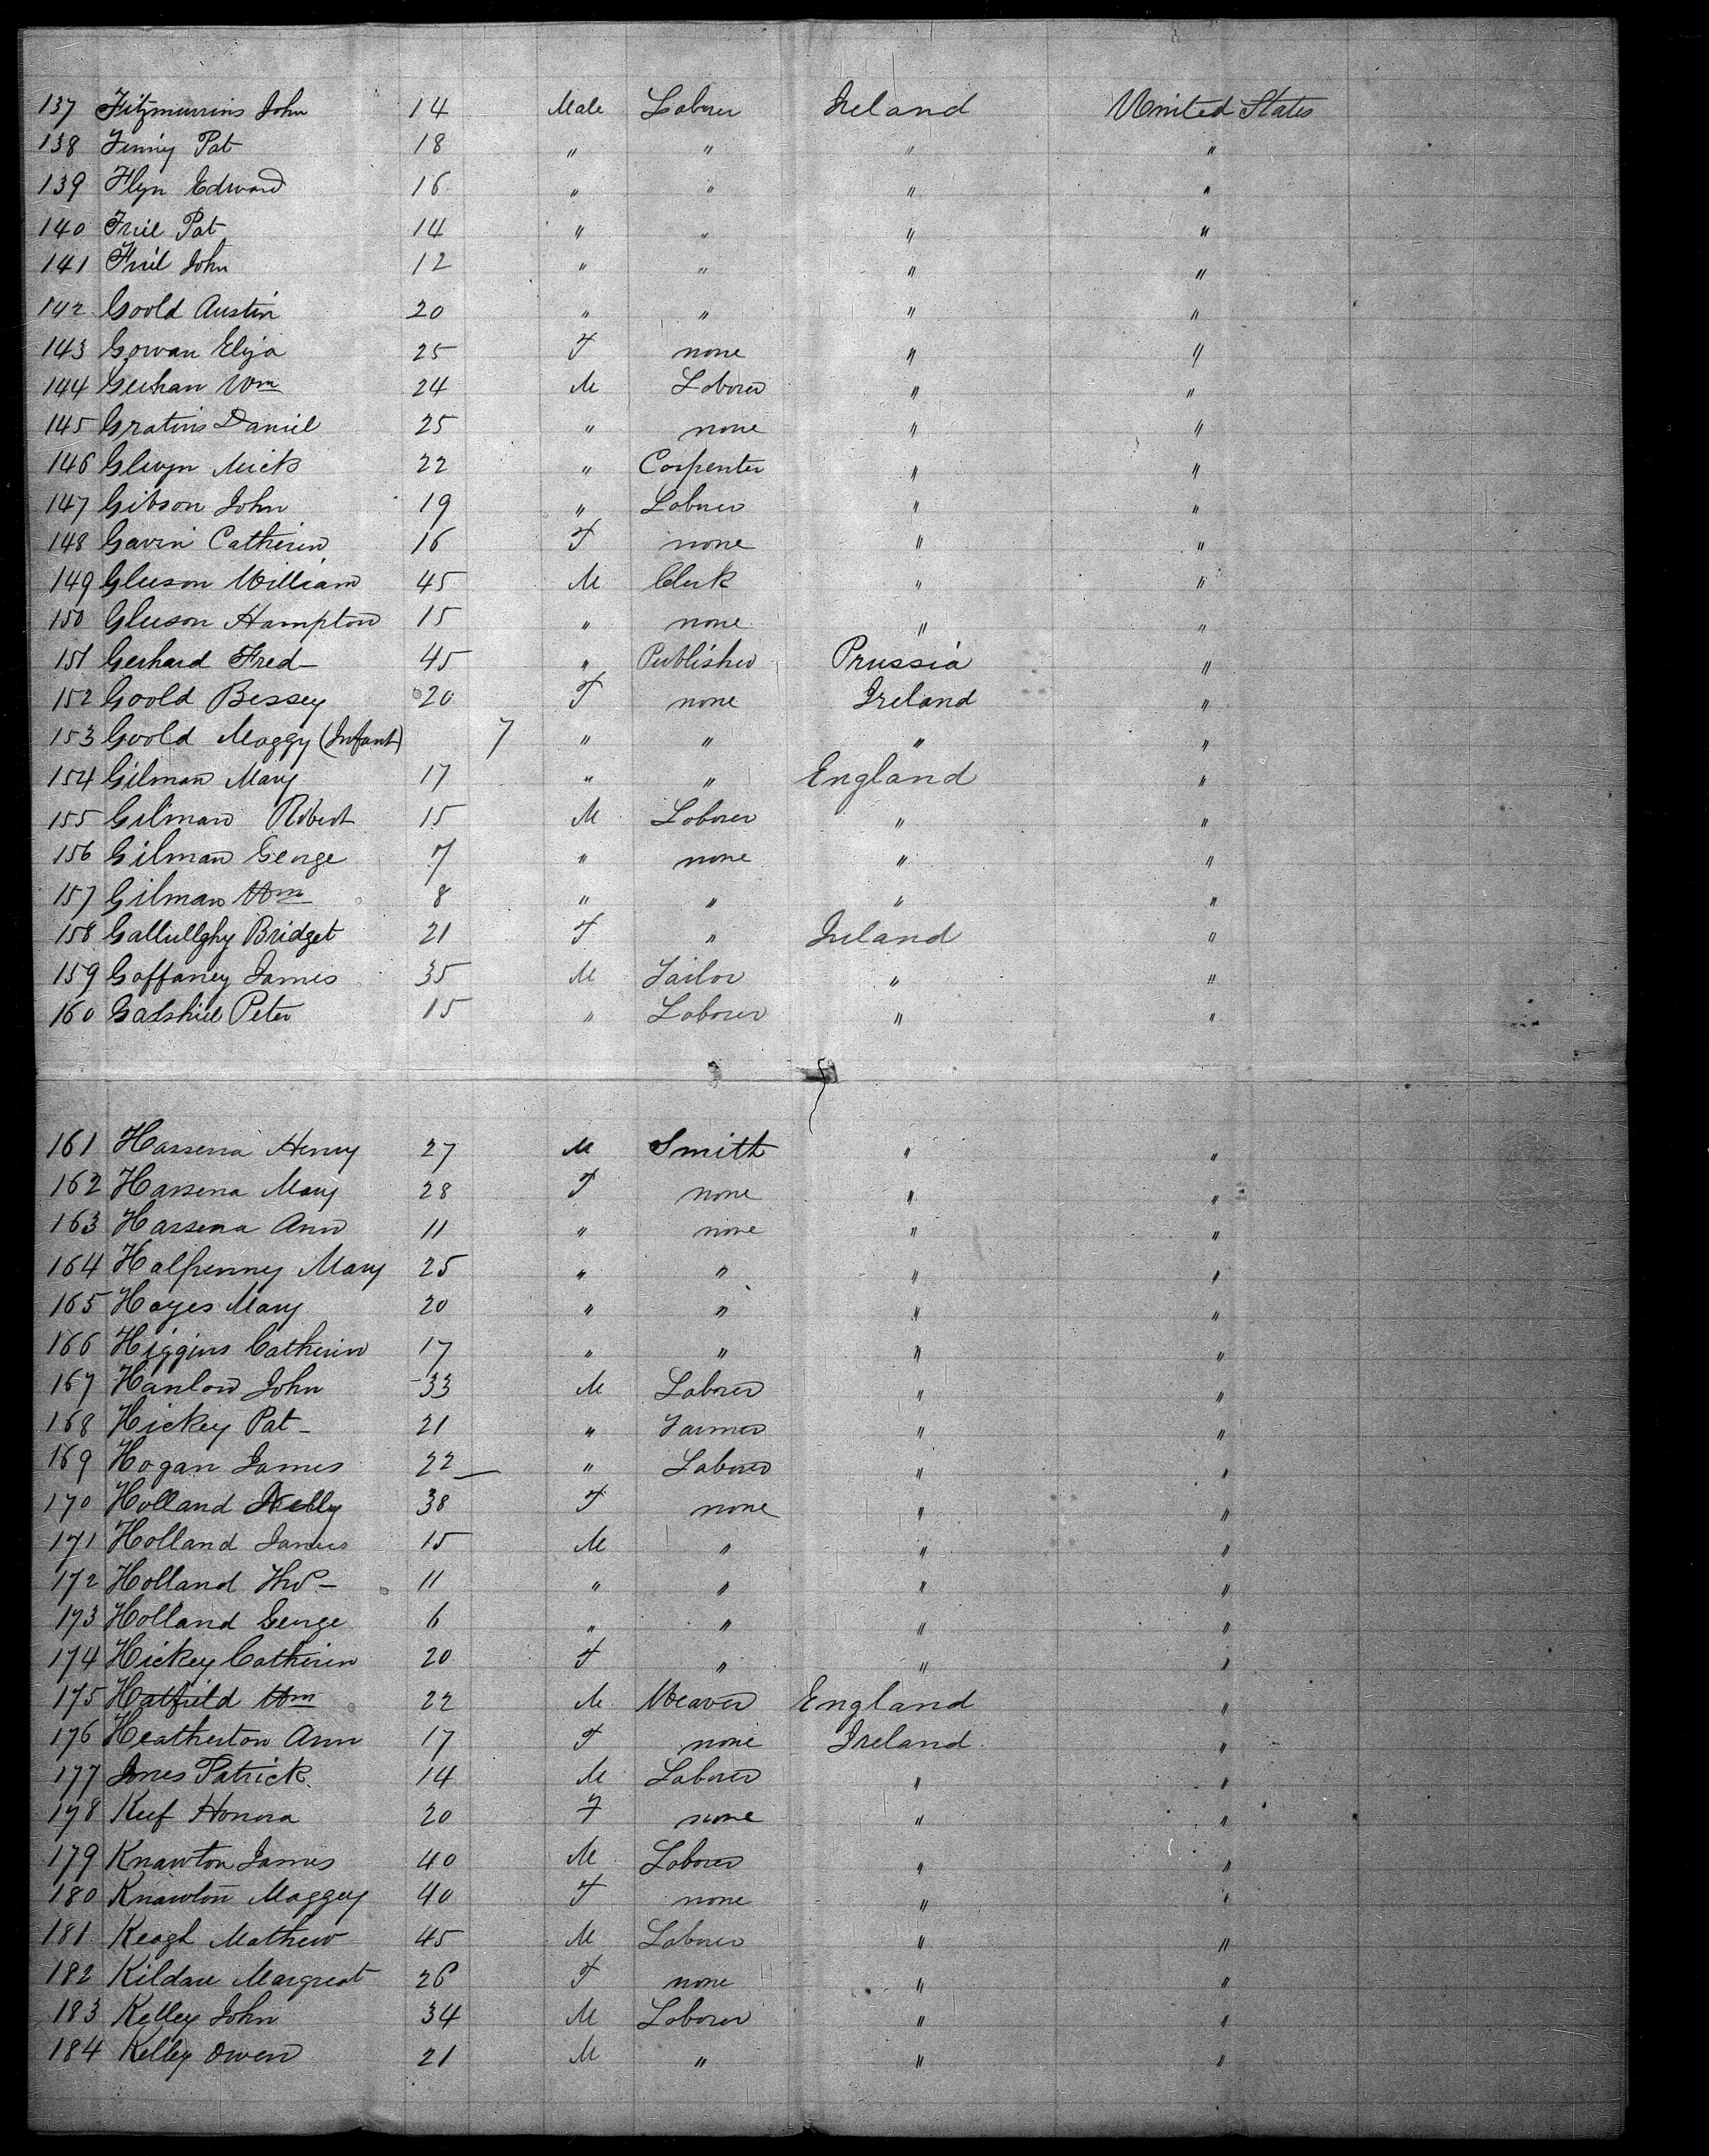 137 Fitzmurrins John 14 Male Laborer Ireland United States
138 Finny Pat 18 " " " "
139 Flyn Edward 16 " " " "
140 Friel Pat 14 " " " "
141 Friel John 12 " " " "
142 Goold Austin 20 " " " "
143 Gowan Eliza 25 F none " "
144 Geehan Wm 24 M Laborer " "
145 Daniel 25 " none " "
146 Glwyn Mick 22 " Carpenter " "
147 Gibson John 19 " Laborer " "
148 Gavin Catherin 16 F none " "
149 Gleeson William 45 M Clerk " "
150 Gleeson Hampton 15 " none " "
151 Gerhard Fred 45 " Publisher Prussia "
152 Goold Bessey 20 F none Ireland "
153 Goold Maggy (Infant) 7 " " " "
154 Gilman Mary 17 " " England "
155 Gilman Robert 15 M Laborer " "
156 Gilman George 7 " none " "
157 Gilman Wm 8 " " " "
158 Gallullghy Bridget 21 F " Ireland "
159 Gaffaney James 35 M Tailor " "
160 Gatshiel Peter 15 " Laborer " "
161 Harsena Henry 27 M Smith " "
162 Harsena Mary 28 F none " "
163 Harsena Ann 11 " none " "
164 Halfpenny Mary 25 " " " "
165 Hayes Mary 20 " " " "
166 Higgins Catherin 17 " " " "
167 Hanlow John 33 M Laborer " "
168 Hickey Pat 21 " Farmer " "
169 Hogan James 22 " Laborer " "
170 Holland 38 F none " "
171 Holland James 15 M " " "
172 Holland Thos 11 " " " "
173 Holland George 6 " " " "
174 Hickey Catherin 20 F " " "
175 Hatfield Wm 22 M Weaver England "
176 Heatherton Ann 17 F none Ireland "
177 Jones Patrick 14 M Laborer " "
178 Keef Honora 20 F none " "
179 Knawton James 40 M Laborer " "
180 Knawton Maggey 40 F none " "
181 Keagh Mathew 45 M Laborer " "
182 Kildare Margreat 26 F none " "
183 Kelley John 34 M Laborer " "
184 Kelley Owen 21 M " " "